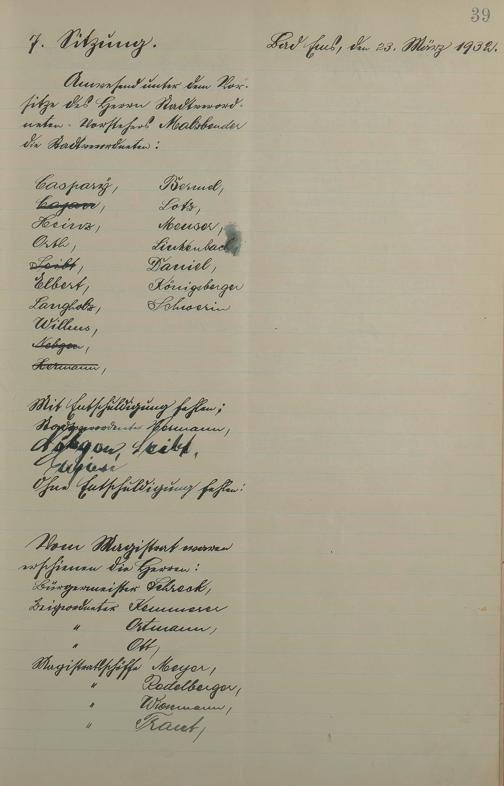 39
7. Sitzung. Bad Ems, den 23. März 1932.
Anwesend unter dem Vor-
sitze des Herrn Stadtverord-
neten-Vorstehers Malsbender
die Stadtverordneten:
Caspary, Bermel,
Cajan, Lotz,
Heinz, Menser,
Orth, Linkenbach,
Seibt, Daniel,
Elbert, Königsberger
Langholz, Schwerin
Willems,
Nebgen,
Hermann,
Mit Entschuldigung fehlen;
Stadtverordneter Hermann,
Nebgen, Seibt,
Ohne Entschuldigung fehlen:
Vom Magistrat waren
erschienen die Herren:
Bürgermeister Schreck,
Beigeordneter Kemmerer
" Ortmann,
" Ott,
Magistratsschöffe Meyer,
" Rodelberger,
" Wiesmann,
" Traut,